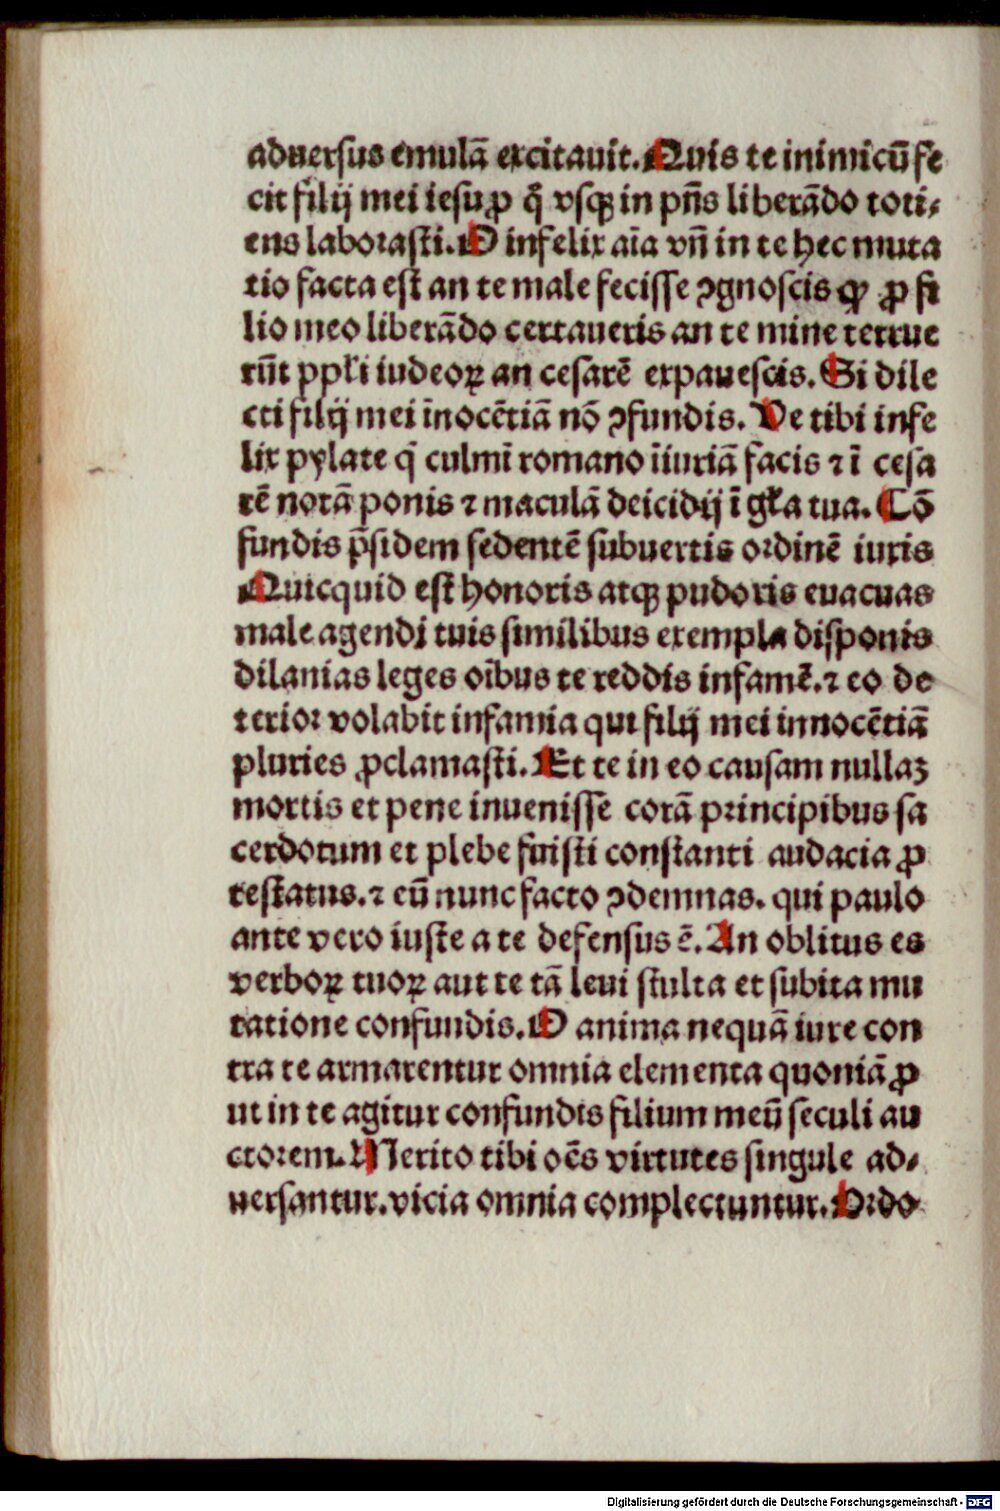 aduersus emulā excitauit. Quis te inimicū fe
cit filij mei iesu ꝓ q̄ vsqꝫ in pn̄s liberādo toti⸗
ens laborasti. O infelix aīa vn̄ in te hec muta
tio facta est an te male fecisse ꝯgnoscis ꝙ ꝓ fi
lio meo liberādo certaueris an te mine terrue
rūt ppl̄i iudeoꝝ an cesarē expauescis. Si dile
cti filij mei īnocētiā nō ꝯfundis. Ve tibi infe
lix pylate q̄ culmī romano īiuriā facis ⁊ ī cesa
rē notā ponis ⁊ maculā deicidij ī gl̄a tua. Cō
fundis p̄sidem sedentē subuertis ordinē iuris
Quicquid est honoris atqꝫ pudoris euacuas
male agendi tuis similibus exempla disponis
dilanias leges oībus te reddis infamē. ⁊ eo de
terior volabit infamia qui filij mei innocētiā
pluries ꝓclamasti. Et te in eo causam nullaꝫ
mortis et pene inuenisse corā principibus sa
cerdotum et plebe fuisti constanti audacia ꝓ
testatus. ⁊ eū nunc facto ꝯdemnas. qui paulo
ante vero iuste a te defensus ē. An oblitus es
verboꝝ tuoꝝ aut te tā leui stulta et subita mu
tatione confundis. O anima nequā iure con
tra te armarentur omnia elementa quoniā ꝓ
ut in te agitur confundis filium meū seculi au
ctorem. Merito tibi oēs virtutes singule ad⸗
uersantur. vicia omnia complectuntur. Ordo
Digitalisierung gefördert durch die Deutsche Forschungsgemeinschaft - DFG